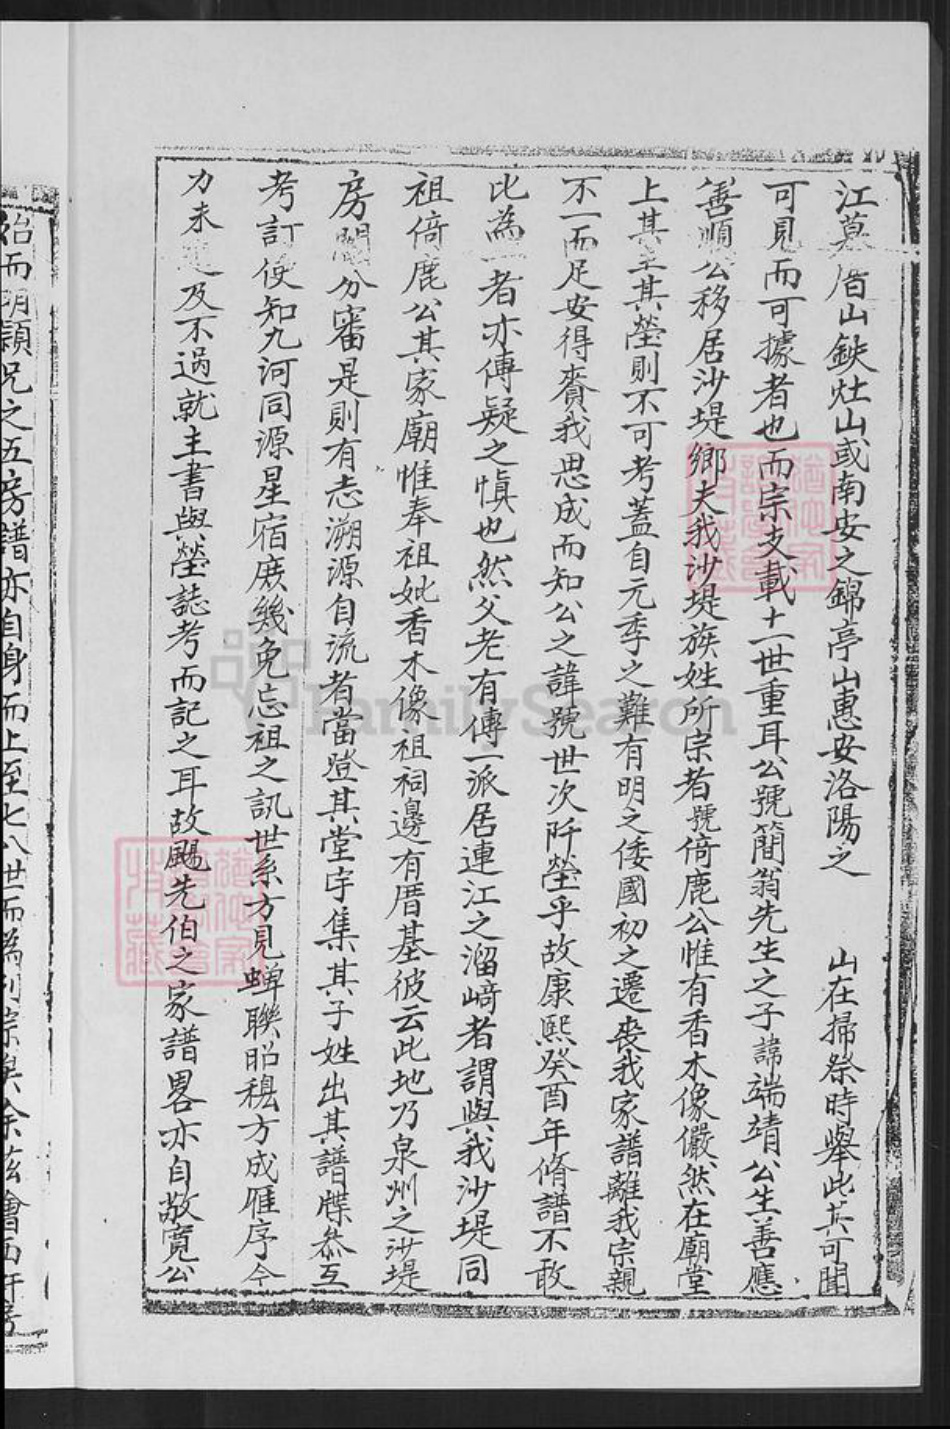 江墓眉山鈇灶山或南安之錦亭山惠安洛陽之 山在掃祭時舉此其可聞
可見而可據者也而宗支載十一世重耳公號簡翁先生之子諱端靖公生善應
善順公移居沙堤鄉夫我沙堤族姓所宗者號倚鹿公惟有香木像儼然在廟堂
上其主其塋則不可考蓋自元季之難有明之倭國初之遷喪我家譜離我宗親
不一而足安得賚我思成而知公之諱號世次阡塋乎故康熙癸酉年脩譜不敢
比為 者亦傳疑之慎也然父老有傳一派居連江之溜﨑者謂與我沙堤同
祖倚鹿公其家廟惟奉祖妣香木像祖祠邊有厝基彼云此地乃泉州之沙堤
房 分審是則有志溯源自流者當登其堂宇集其子姓出其譜牒叅互
考訂使知九河同源星宿厥幾免忘祖之訊世系方見蟬聯昭穆方成雁序今
力未 及不過就主書與塋誌考而記之耳故颺先伯之家譜畧亦自敬寬公
而明穎兄之五房譜亦自身而上至七八世而為
FamilySearch